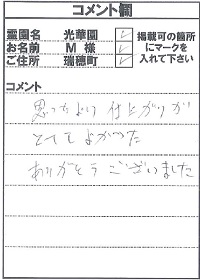 コメント欄
霊園名 光華園 ✓ 掲載可の箇所
お名前 M 様 ✓ にマークを
ご住所 瑞穂町 ✓ 入れて下さい
コメント
思ったより仕上がりが
とってもよかった
ありがとうございました